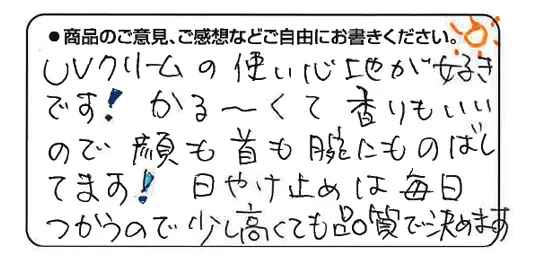 ●商品のご意見、ご感想などご自由にお書きください。
UVクリームの使い心地が好き
です! かる〜くて香りもいい
ので顔も首も腕にものばし
てます! 日やけ止めは毎日
つかうので少し高くても品質で決めます